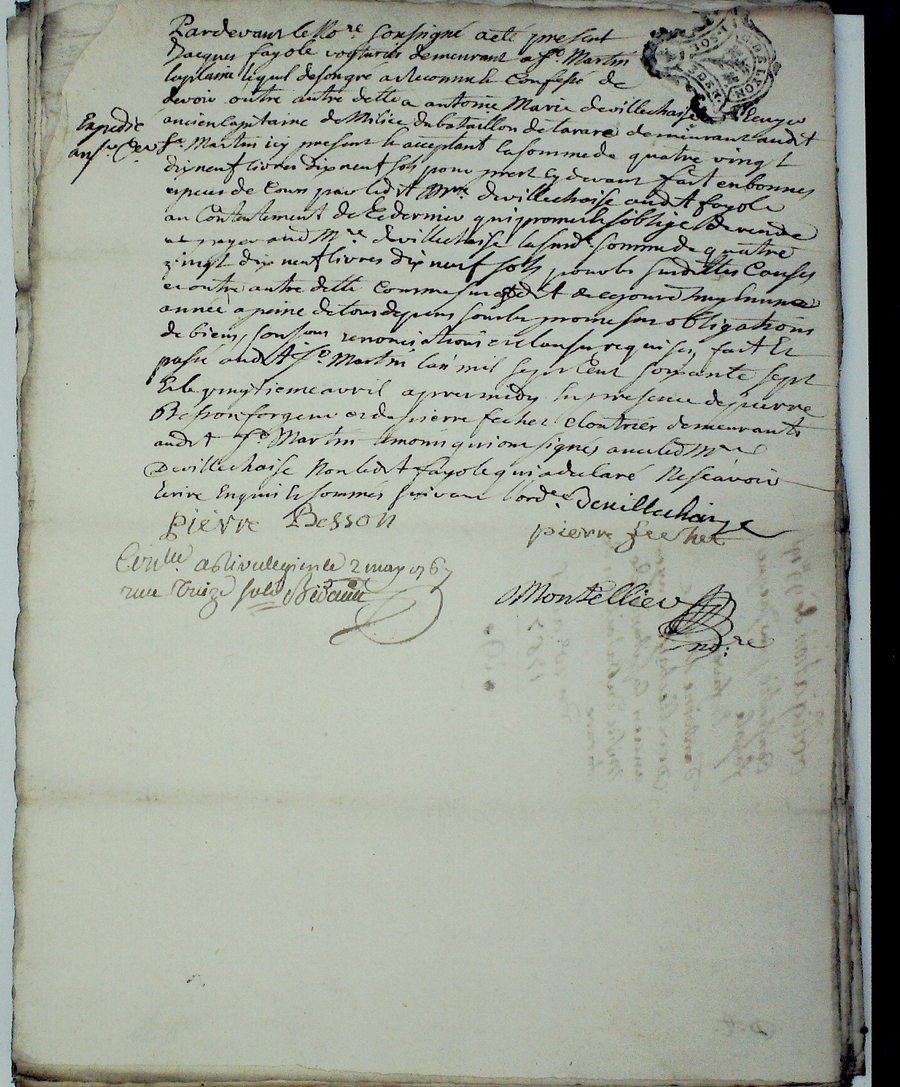 Pardevant le No.re soussigné a eté present
Jacques fayole voyturier demeurant a St Martin
la plaine lequel de son gre a Reconnu & Confessé de
devoir outre autre dette a antoine Marie devillechaise Ecuyer
ancien Capitaine de Milice du bataillon de tarare demeurant audit
Expedié
St. Martin icy present & acceptant la somme de quatre vingt
dix neuf livres dix neuf sols pour prest cy devant fait en bonnes
especes de Cours par ledit Mre. devillechaise audit fayole
au Contentement de Ce dernier qui promet & s'oblige de rendre
et payer audit Mre. devillechaise la sud. somme de quatre
vingt dix neuf livres dix neuf sols pour les susdittes Causes
et outre autre dette Comme sus est dit de ce jourd'huy en une
année a peine de tous depens sous les promesses obligations
de biens, soumis. renonciations et clauses requises, fait Et
passé audit St. Martin l'an mil sept Cent soixante sept
Et le vingtieme avril apres midy en presence de pierre
Besson forgeur et de pierre fechet cloutrier demeurants
audit St. Martin temoins qui ont signés avec led. Mre
Devillechaise Non ledit fayole qui a declaré Ne scavoir
Ecrire Enquis & sommés suivant l'orde. Devillechaize
pierre Besson pierre fechet
Con.lle a St Rivedegier le 2 may 1767
reçu Treize sols
Montellier
no:re